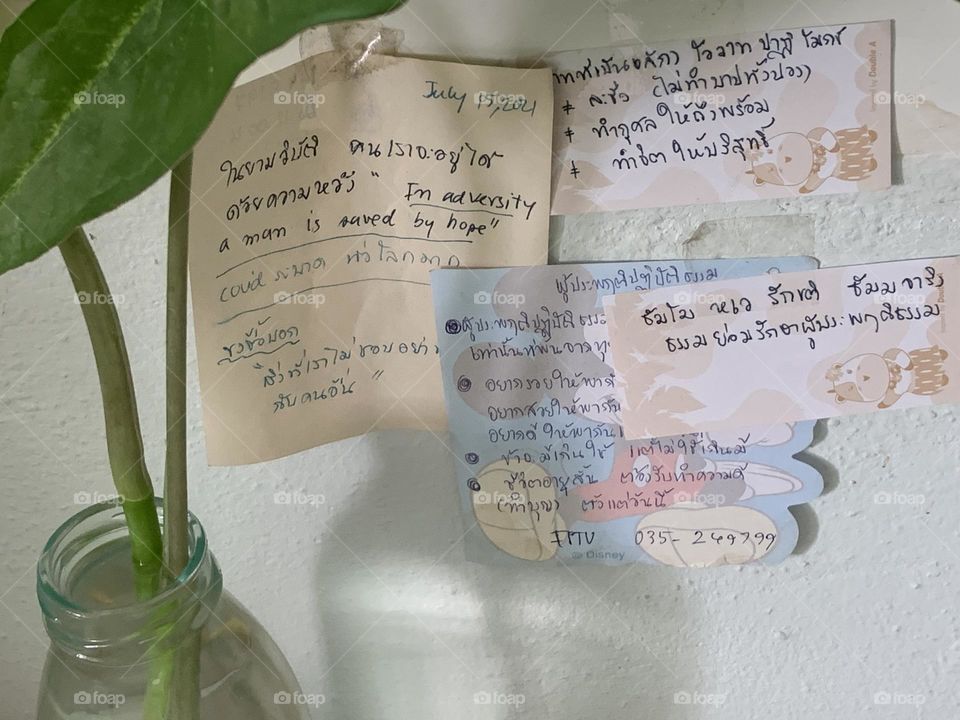 July 15, 2021
ในยามวิบัติ คนเราจะอยู่ได้
ด้วยความหวัง " In adversity
a man is saved by hope"
covid ระบาด ทั่วโลก
สิ่งที่เราไม่ชอบอย่า
กับคนอื่น "
โอวาท ปาฏิโมกข์
* ละชั่ว (ไม่ทำบาปทั้งปวง)
* ทำกุศล ให้ถึงพร้อม
* ทำจิต ให้บริสุทธิ์
by Double A
ผู้ประพฤติปฏิบัติธรรม
ผู้ประพฤติปฏิบัติ ธรรม
เท่านั้นที่
อยากรวยให้
อยากสวยให้
อยากดี ให้
มีเกินใช้ แต่ไม่ใช้เกินมี
ชีวิตอายุสั้น ต้องรีบทำความดี
(ทำบุญ) ตั้งแต่วันนี้
035-249799
© Disney
ธัมโม หเว รักขติ ธัมมจาริง
ธรรมย่อมรักษาผู้ประพฤติธรรม
foap